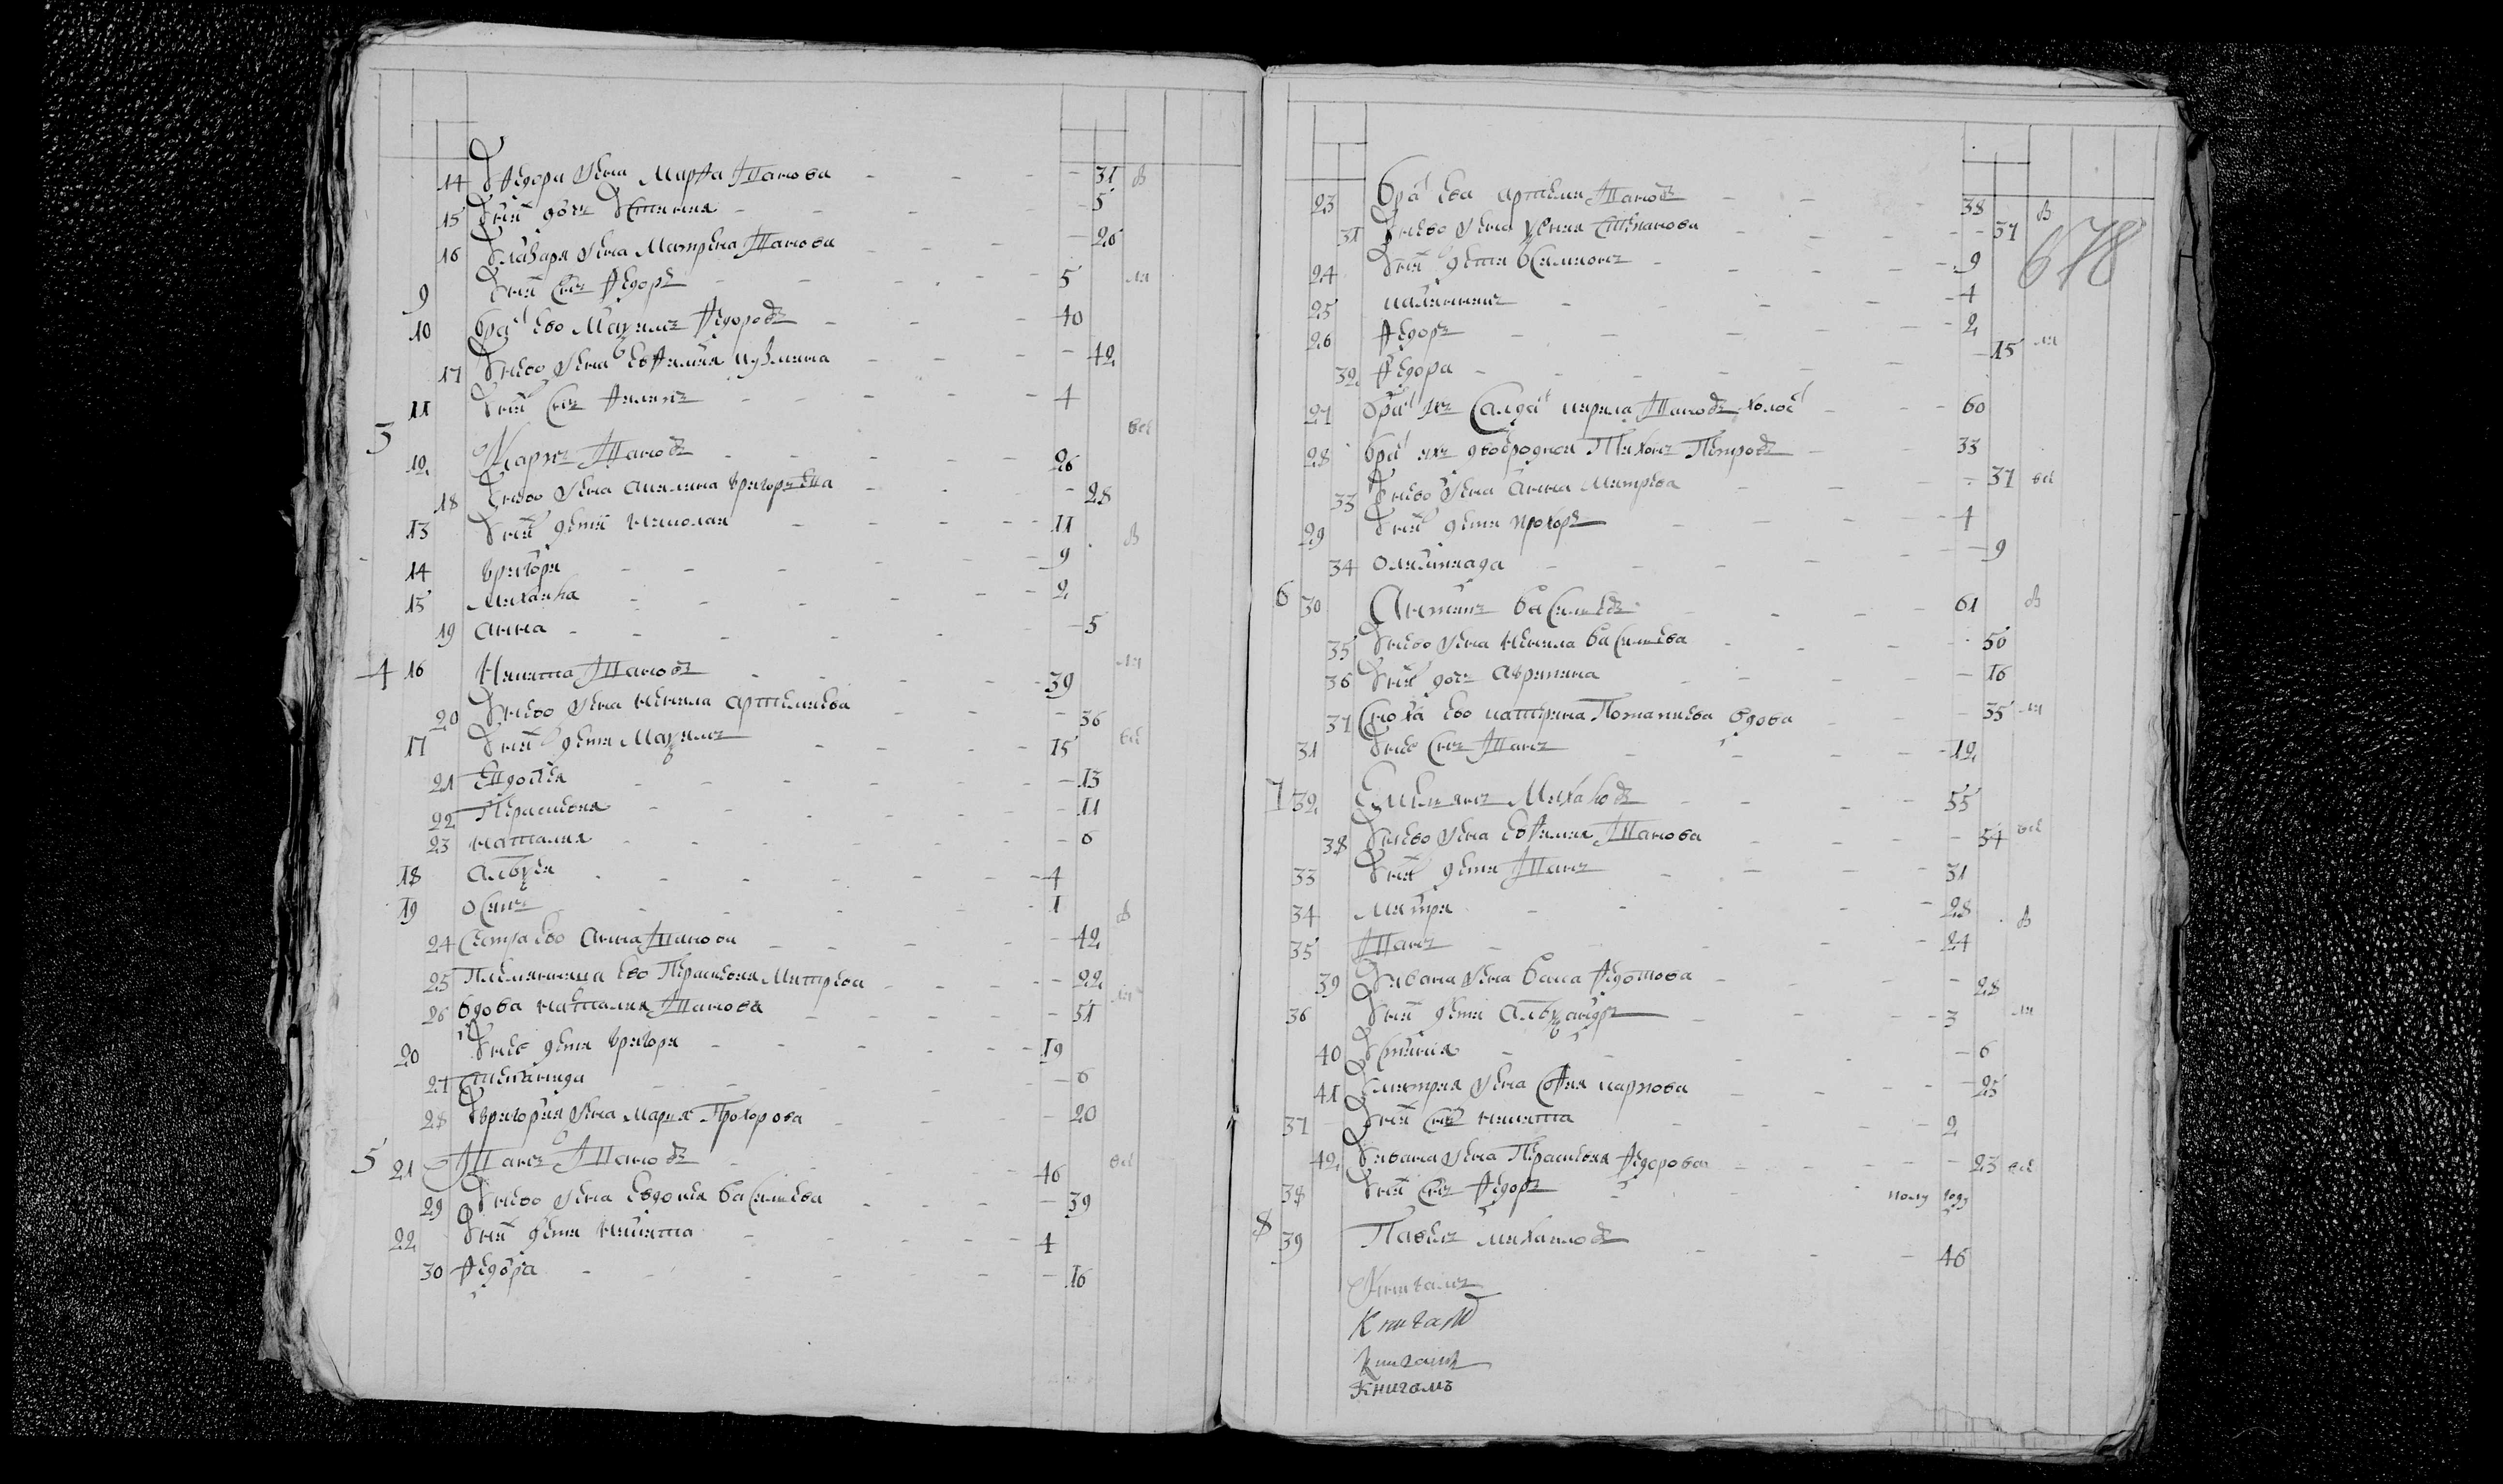 14 Федора жена Марфа Иванова 31 в
15 У них дочь Устинья 5
16 Назара жена Матрена Иванова 20
9 У них сын Федоръ 5 ли
10 Брат ево Маѯимъ Федоровъ 40
17 У нево жена Евфимия Кузмина 42
11 У них сын Филипъ 4
3 12 Карпъ Ивановъ 26 ве
18 У нево жена Акилина Григорьева 28
13 У них дети Николай 11
14 Григори 9 в
15 Михаила 2
19 Анна 5
4 16 Никита Ивановъ 39 ли
20 У нево жена Ненила Артемиева 36
17 У них дети Маѯимъ 15 ве
21 Евдокея 13
22 Парасковя 11
23 Наталия 6
18 Алеѯей 4
19 Осипъ 1
24 Сестра ево Анна Иванова 42 в
25 Племянница ево Парасковя Митрева 22
26 Вдова Наталия Иванова 51 ли
20 У ней дети Григори 19
27 Степанида 6
28 У Григория жена Марья Прохорова 20
5 21 Иванъ Ивановъ 46 ве
29 У нево жена Евдокея Василева 39
22 У них дети Никита 4
30 Федора 16
23 Брат ева Артемей Ивановъ 38 в
31 У нево жена Ксения Степанова 37
678
24 У них дети Филимонъ 9
25 Калиникъ 4
26 Федоръ 2
32 Федора 15 ли
27 Брат ихъ Салдат Кирила Ивановъ холост 60
28 Брат ихъ двоеродной Тихонъ Петровъ 33
33 У нево жена Анна Митрева 37 ве
29 У них дети Прохоръ 4
34 Олимпиада 9
6 30 Антипъ Василевъ 61 в
35 У нево жена Ненила Василева 50
36 У них дочь Агрипина 16
37 Сноха ево Катерина Потапиева вдова 35 ли
31 У ней сынъ Иванъ 12
7 32 Емельянъ Михаловъ 55
38 У нево жена Евфимия Иванова 54 ве
33 У них дети Иванъ 31
34 Митри 28 в
35 Иванъ 24
39 У Ивана жена Васа Федотова 28
36 У них дети Алеѯандръ 3 ли
40 Устиния 6
41 У Дмитрия жена София Карпова 25
37 У них сынъ Никита 2
42 У Ивана жена Парасковя Федорова 23 ве
38 У них сынъ Федоръ полу году
8 39 Павелъ Михаиловъ 46
Книгамъ
Книгам
Книгамъ
Книгамъ